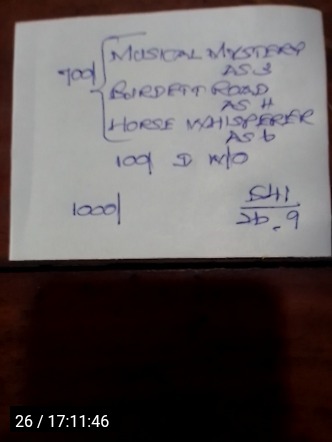 700/ { MUSICAL MYSTERY
AS 3
BURDETT ROAD
AS 4
HORSE WHISPERER
AS 6
100/ D W/O
1000/
541
26.9
26 / 17:11:46